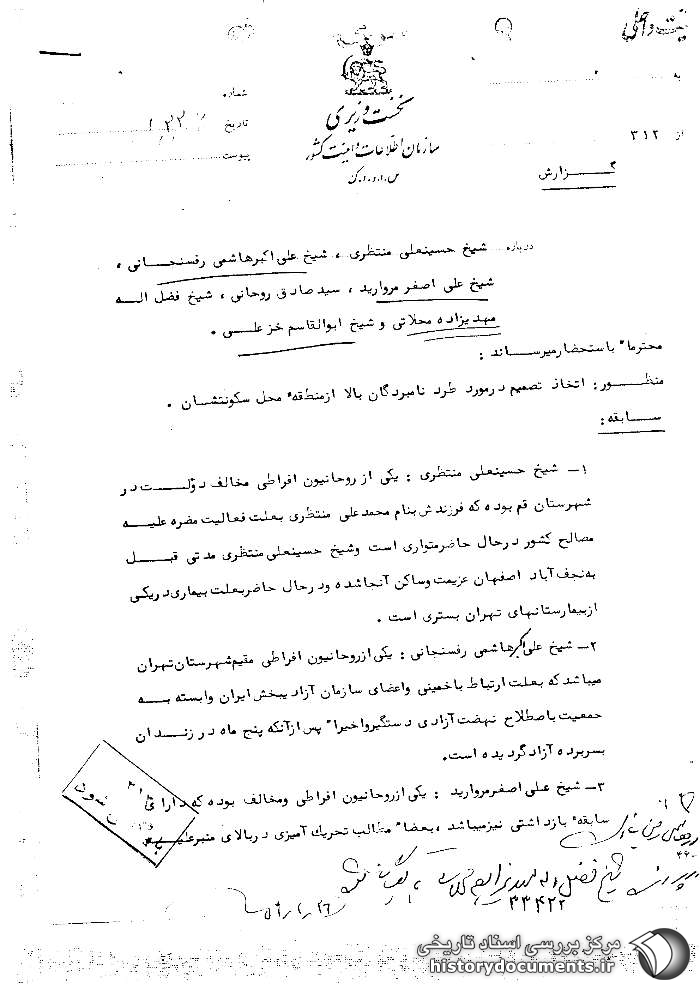 به
از ۳۱۲
نخست وزیری
سازمان اطلاعات و امنیت کشور
س.ا.و.ا.ک
شماره
تاریخ
پیوست
گزارش
درباره شیخ حسینعلی منتظری ، شیخ علی اکبرهاشمی رفسنجانی ،
شیخ علی اصغر مروارید ، سید صادق روحانی ، شیخ فضل اله
مهدیزاده محلاتی و شیخ ابوالقاسم خزعلی .
محترما" باستحضارمیرساند :
منظور: اتخاذ تصمیم درمورد طرد نامبردگان بالا ازمنطقه محل سکونتشان .
سابقه :
۱- شیخ حسینعلی منتظری : یکی از روحانیون افراطی مخالف دولت در
شهرستان قم بوده که فرزندش بنام محمدعلی منتظری بعلت فعالیت مضره علیه
مصالح کشور درحال حاضرمتواری است وشیخ حسینعلی منتظری مدتی قبل
به نجف آباد اصفهان عزیمت وساکن آنجا شده ودرحال حاضربعلت بیماری دریکی
ازبیمارستانهای تهران بستری است .
۲- شیخ علی اکبرهاشمی رفسنجانی : یکی ازروحانیون افراطی مقیم شهرستان تهران
میباشد که بعلت ارتباط باخمینی واعضای سازمان آزادیبخش ایران وابسته به
جمعیت باصطلاح نهضت آزادی دستگیرواخیرا" پس ازآنکه پنج ماه در زندان
بسربرده آزاد گردیده است.
۳- شیخ علی اصغرمروارید : یکی ازروحانیون افراطی ومخالف بوده که دارای
سابقه بازداشتی نیزمیباشد ، بعضا" مطالب تحریک آمیزی دربالای منبرعلیه
شیخ فضل اله
۳۳۴۲۲
مرکز بررسی اسناد تاریخی
historydocuments.ir